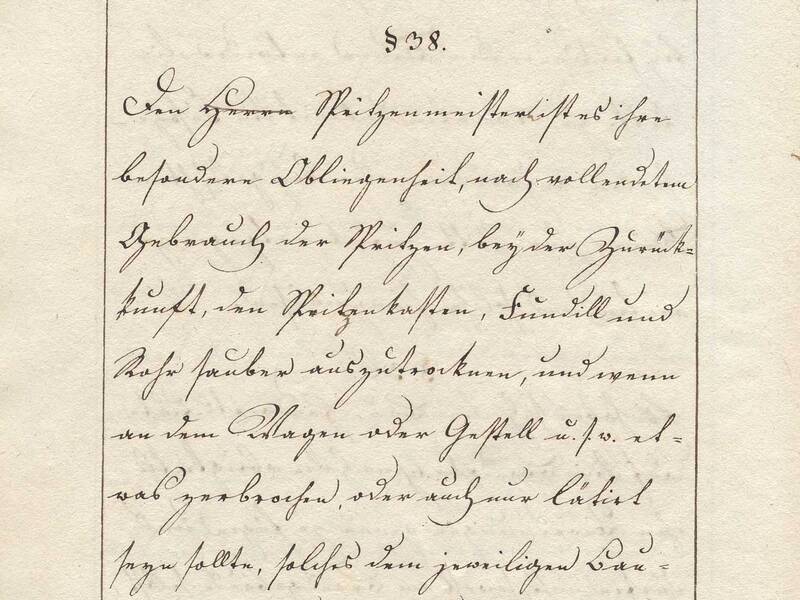 § 38.
Den Herrn Spritzenmeister ist es ihre
besondere Obliegenheit, nach vollendetem
Gebrauch der Spritzen, bey der Zurück=
kunft, den Spritzenkasten, Fundill und
Rohr sauber auszutrocknen, und wenn
an dem Wagen oder Gestell u. s. w. et=
was zerbrochen, oder auch nur lätirt
seyn sollte, solches dem jeweiligen Bau=